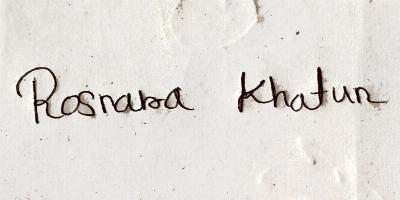 Rosnara Khatun